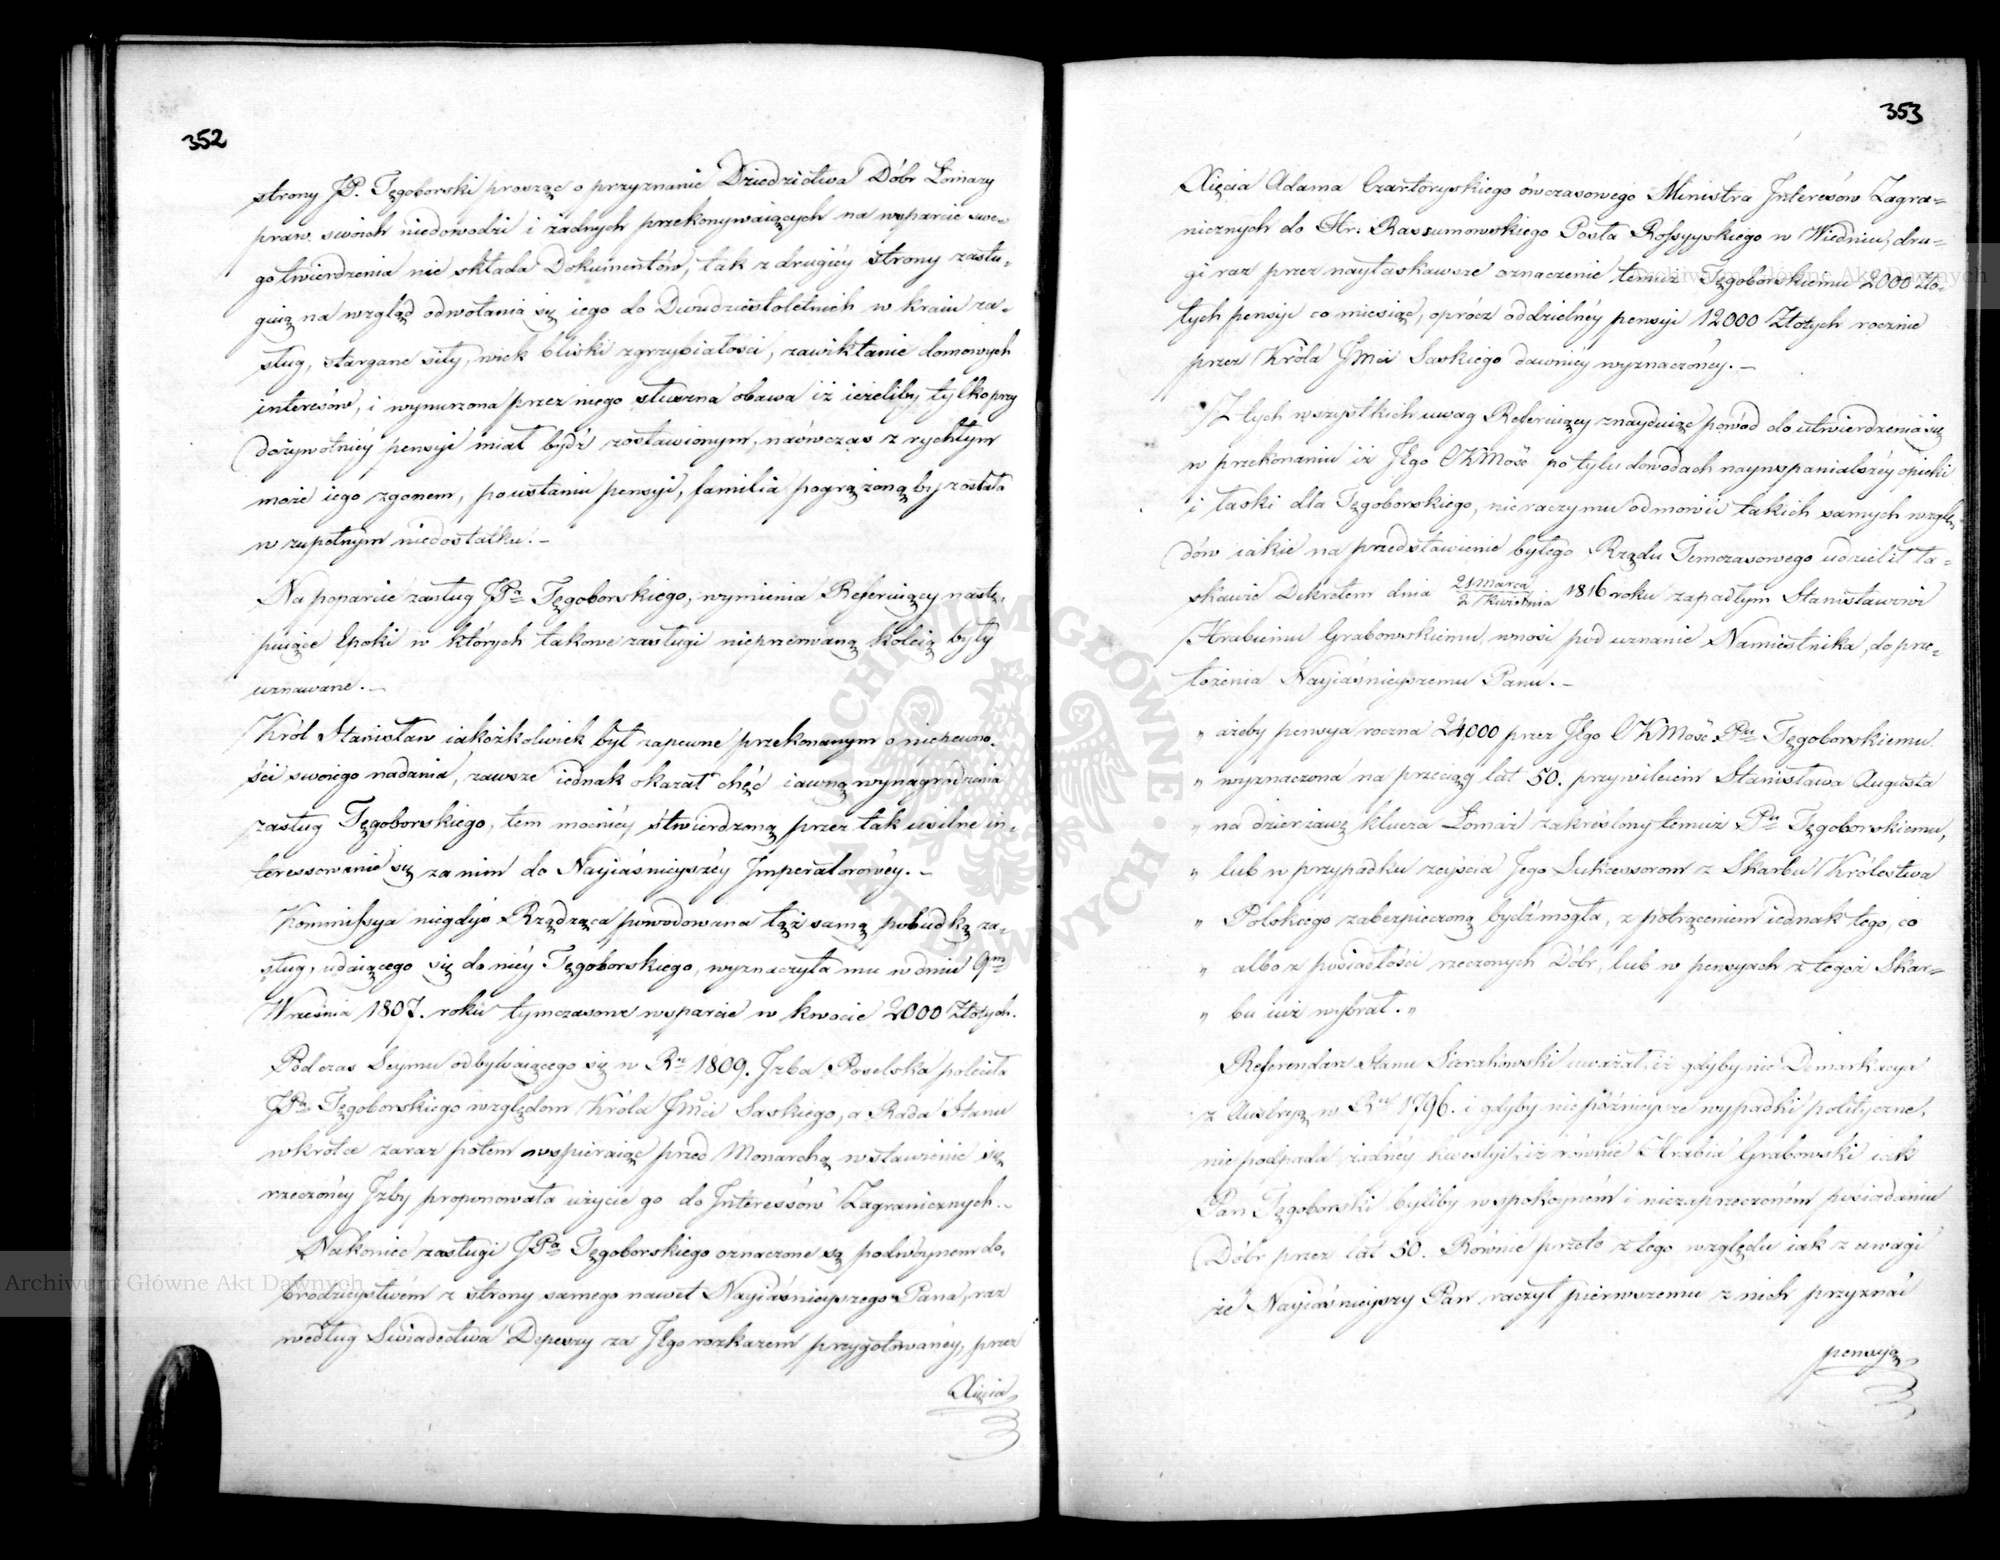 352
strony JP. Tęgoborski prosząc o przyznanie Dziedzictwa Dóbr Łomazy
praw swoich niedowodzi i żadnych przekonywaiących na wsparcie swe-
go twierdzenia nie składa Dokumentów, tak z drugiéy strony zasłu-
guią na wzgląd odwołania się iego do Dwudziestoletnich w kraiu za-
sług, stargane siły, wiek bliski zgrzybiałości, zawikłanie domowych
interesów, i wynurzona przez niego słuszna obawa iż ieżeliby tylko przy
dożywotniéy pensyi miał bydź zostawionym, naówczas z rychłym
może iego zgonem, po ustaniu pensyi, familia pogrążoną by została
w zupełnym niedostatku. –
Na poparcie zasług JPa Tęgoborskiego, wymienia Referuiący nastę-
puiące Epoki w których takowe zasługi nieprzerwaną koleią były
uznawane. –
Król Stanisław iakożkolwiek był zapewne przekonanym o niepewno-
ści swoiego nadania, zawsze iednak okazał chęć iawną wynagrodzenia
zasług Tęgoborskiego, tem mocniéy stwierdzoną przez tak usilne in-
teressowanie się za nim do Nayiaśnieyszéy Imperatorowéy. –
Kommissya niegdyś Rządząca powodowana tąż samą pobudką za-
sług, udaiącego się do niéy Tęgoborskiego, wyznaczyła mu w dniu 9m
Września 1807. roku tymczasowe wsparcie w kwocie 2000 Złotych.
Podczas Seymu odbywaiącego się w Ru 1809. Izba Poselska poleciła
JPa Tęgoborskiego względom Króla JMci Saskiego, a Rada Stanu
wkrótce zaraz potem wspieraiąc przed Monarchą wstawienie się
rzeczonéy Izby proponowała użycie go do Interessów Zagranicznych. –
Nakoniec zasługi JPa Tęgoborskiego oznaczone są podwóynem do-
brodzieystwem z strony samego nawet Nayiaśnieyszego Pana, raz
według Swiadectwa Depeszy za Jego rozkazem przygotowanéy, przez
Xięcia
353
Xięcia Adama Czartoryskiego ówczasowego Ministra Interesów Zagra-
nicznych do Hr: Rassumowskiego Posła Rossyyskiego w Wiedniu, dru-
gi raz przez nayłaskawsze oznaczenie temuż Tęgoborskiemu 2000 Zło-
tych pensyi co miesiąc, oprócz oddzielnéy pensyi 12000 Złotych rocznie
przez Króla JMci Saskiego dawniéy wyznaczonéy. –
Z tych wszystkich uwag Referuiący znayduiąc powód do utwierdzenia się
w przekonaniu iż Jego CKMość po tylu dowodach naywspanialszéy opieki
i łaski dla Tęgoborskiego, nie raczy mu odmówić takich samych wzglę-
dów iakie na przedstawienie byłego Rządu Temczasowego udzielił ła-
skawie Dekretem dnia 21 Marca / 2 Kwietnia 1816 roku zapadłym Stanisławowi
Hrabiemu Grabowskiemu, wnosi pod uznanie Namiestnika, do prze-
łożenia Nayiaśnieyszemu Panu. –
„ ażeby pensya roczna 24000 przez Jego CKMość Pu Tęgoborskiemu
„ wyznaczona na przeciąg lat 50. przywileiem Stanisława Augusta
„ na dzierżawę klucza Łomaz zakreślony temuż Pu Tęgoborskiemu,
„ lub w przypadku zeyścia Jego Sukcessorom z Skarbu Królestwa
„ Polskiego zabezpieczoną bydź mogła, z potrąceniem iednak tego, co
„ albo z posiadłości rzeczonych Dóbr, lub w pensyach z tegoż Skar-
„ bu iuż wybrał. „
Referendarz Stanu Sierakowski uważał, iż gdyby nie Demarkacya
z Austryą w Ru 1796. i gdyby nie późnieysze wypadki polityczne,
nie podpada żadnéy kwestyi, iż równie Hrabia Grabowski iak
Pan Tęgoborski byliby w spokoyném i niezaprzeczoném posiadaniu
Dóbr przez lat 50. Równie przeto z tego względu iak z uwagi
że Nayiaśnieyszy Pan raczył pierwszemu z nich przyznać
pensyą
ARCHIWUM GŁÓWNE AKT DAWNYCH
Archiwum Główne Akt Dawnych
Archiwum Główne Akt Dawnych